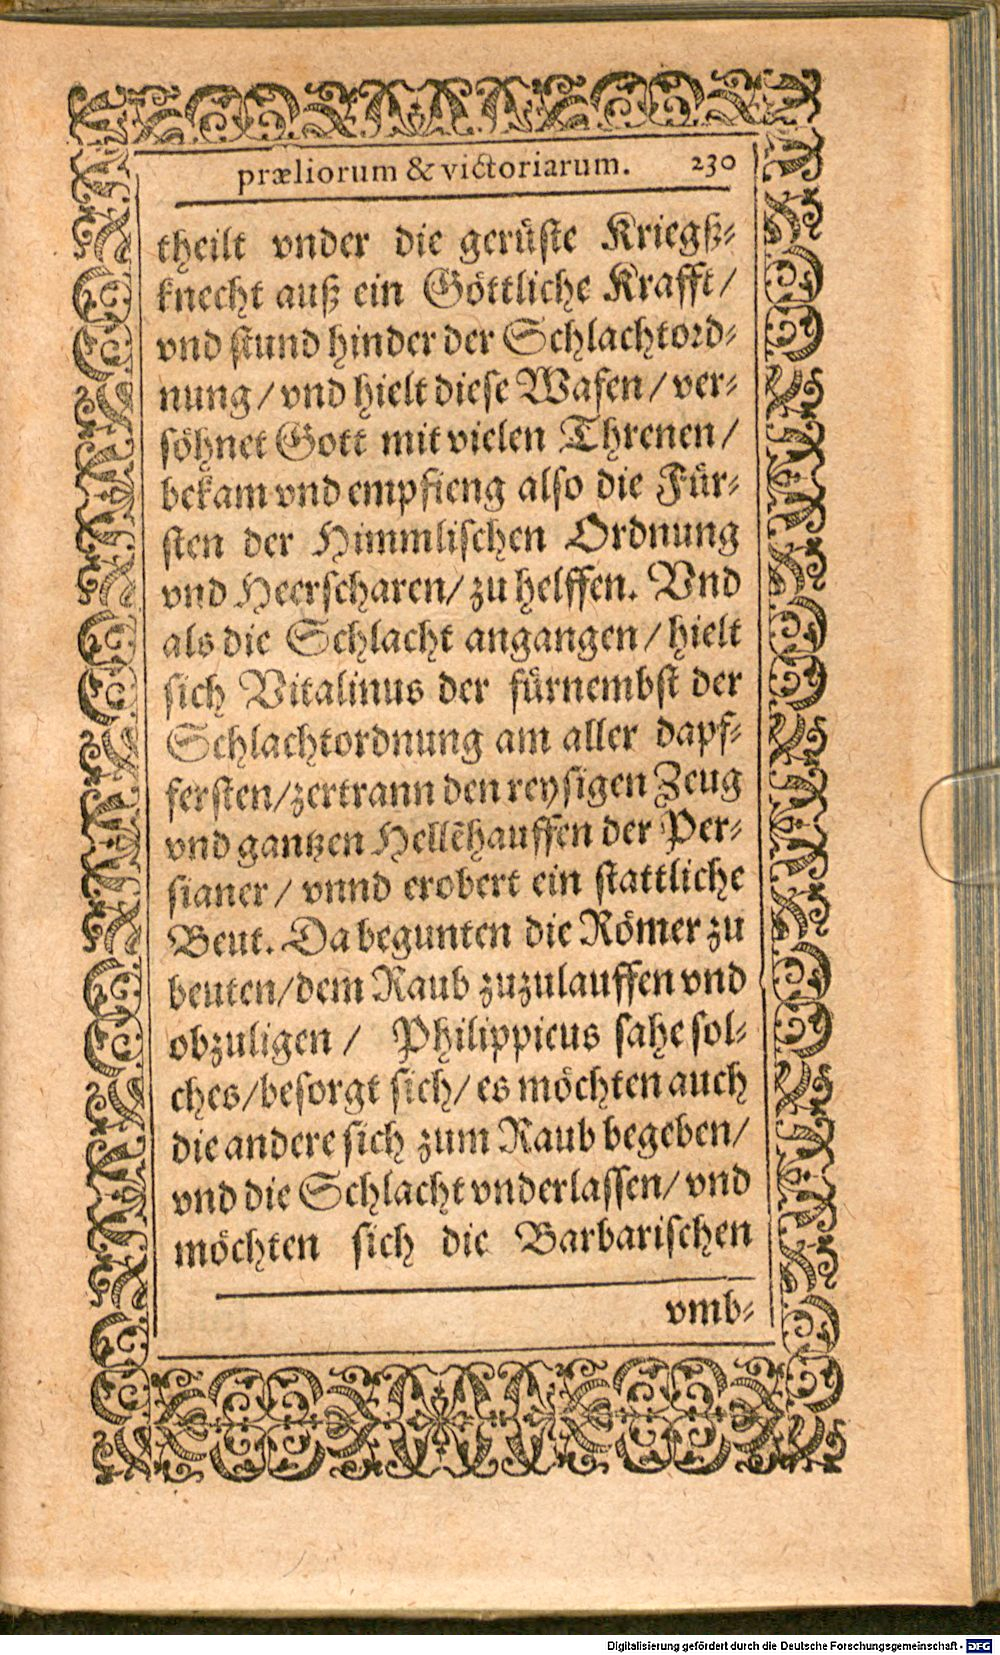 præliorum & victoriarum. 230
theilt vnder die gerüste Kriegß-
knecht auß ein Göttliche Krafft/
vnd stund hinder der Schlachtord-
nung/vnd hielt diese Wafen/ver-
söhnet Gott mit vielen Threnen/
bekam vnd empfieng also die Für-
sten der Himmlischen Ordnung
vnd Heerscharen/zu helffen. Vnd
als die Schlacht angangen/hielt
sich Vitalinus der fürnembst der
Schlachtordnung am aller dapf-
fersten/zertrann den reysigen Zeug
vnd gantzen Hellēhauffen der Per-
sianer/ vnnd erobert ein stattliche
Beut. Da begunten die Römer zu
beuten/dem Raub zuzulauffen vnd
obzuligen/ Philippicus sahe sol-
ches/besorgt sich/es möchten auch
die andere sich zum Raub begeben/
vnd die Schlacht vnderlassen/vnd
möchten sich die Barbarischen
vmb-
Digitalisierung gefördert durch die Deutsche Forschungsgemeinschaft - DFG